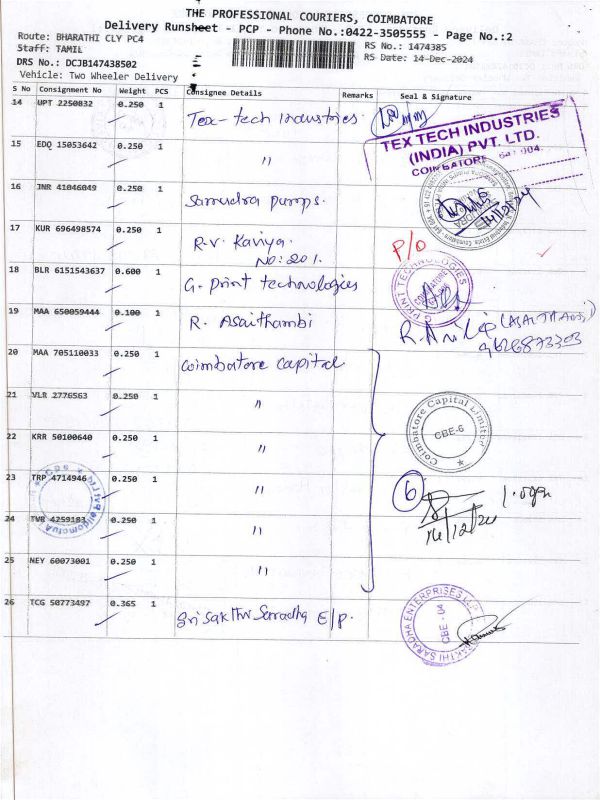 THE PROFESSIONAL COURIERS, COIMBATORE
Delivery Runsheet - PCP - Phone No.:0422-3505555 - Page No.:2
Route: BHARATHI CLY PC4
RS No.: 1474385
Staff: TAMIL
RS Date: 14-Dec-2024
DRS No.: DCJB147438502
Vehicle: Two Wheeler Delivery
S No Consignment No Weight PCS Consignee Details Remarks Seal & Signature
14 UPT 2250032 0.250 1 Tex-tech Industries.
TEX TECH INDUSTRIES
(INDIA) PVT. LTD.
COIMBATORE
15 EDQ 15053642 0.250 1 "
16 JNR 41046049 0.250 1 Samudra pumps.
17 KUR 696498574 0.250 1 R.V. Kaviya.
NO: 201.
P/O
18 BLR 6151543637 0.600 1 G. Print technologies
G PRINT TECHNOLOGIES
19 MAA 650059444 0.100 1 R. Asaithambi
9626873303
20 MAA 705110033 0.250 1 Coimbatore capital
21 VLR 2776563 0.250 1 "
Coimbatore Capital Limited
CBE-6
22 KRR 50100640 0.250 1 "
23 TRP 4714946 0.250 1 "
6
24 TVR 4259183 0.250 1 "
14/12/24
25 NEY 60073001 0.250 1 "
26 TCG 50773497 0.365 1 Sri Sakthi Saradha E/P.
SAKTHI SARADHA ENTERPRISES LLP